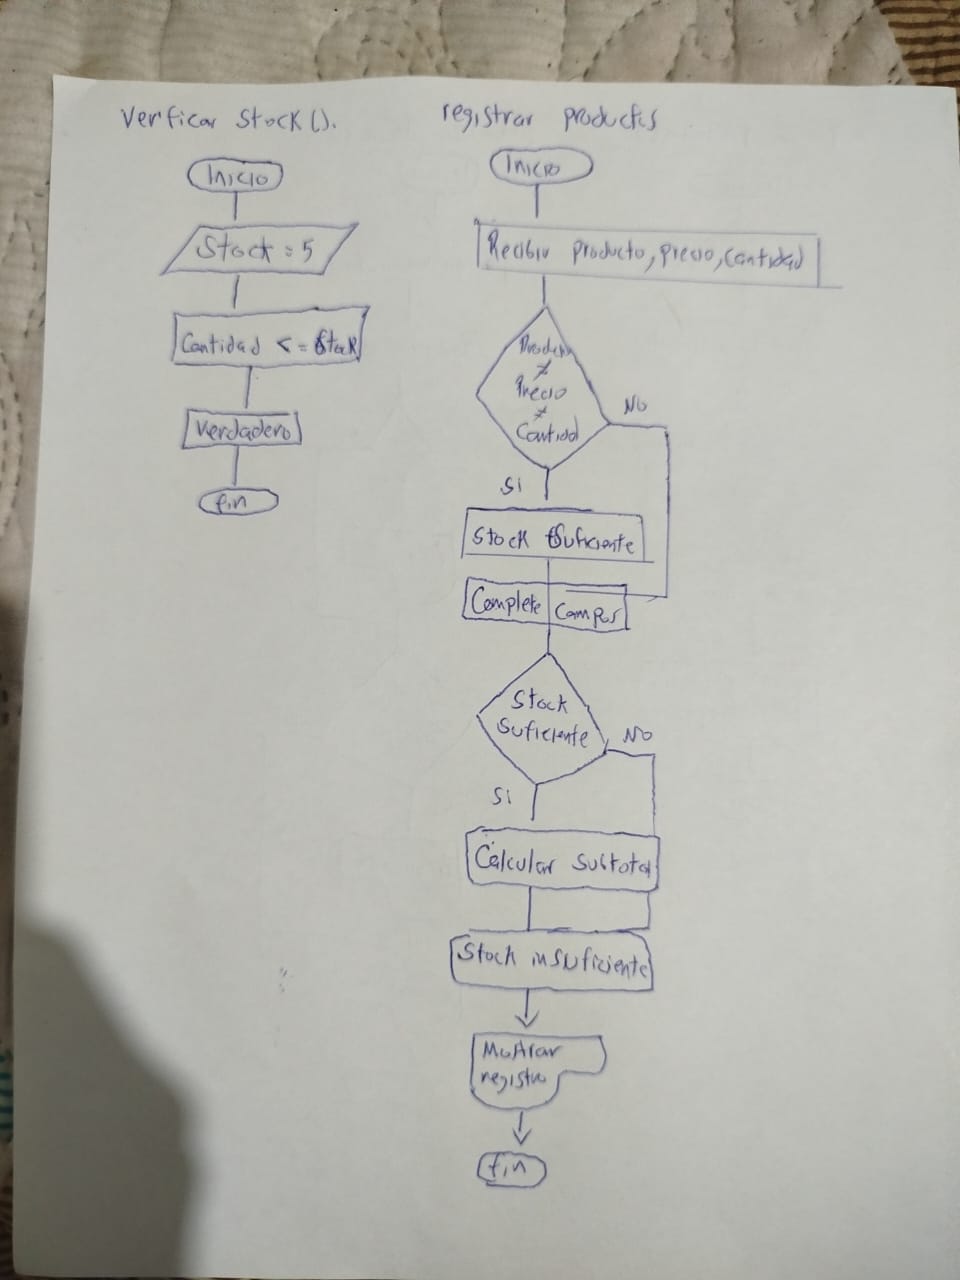 Verficar Stock().
Inicio
Stock = 5
Cantidad <= Stok
Verdadero
fin
registrar productos
Inicio
Recibir producto, precio, Cantidad
≠
Precio
≠
Cantidad
NO
Si
Stock Suficiente
Complete Campos
Stock
Suficiente
NO
Si
Calcular subtotal
Stock insuficiente
Mostrar
registro
fin